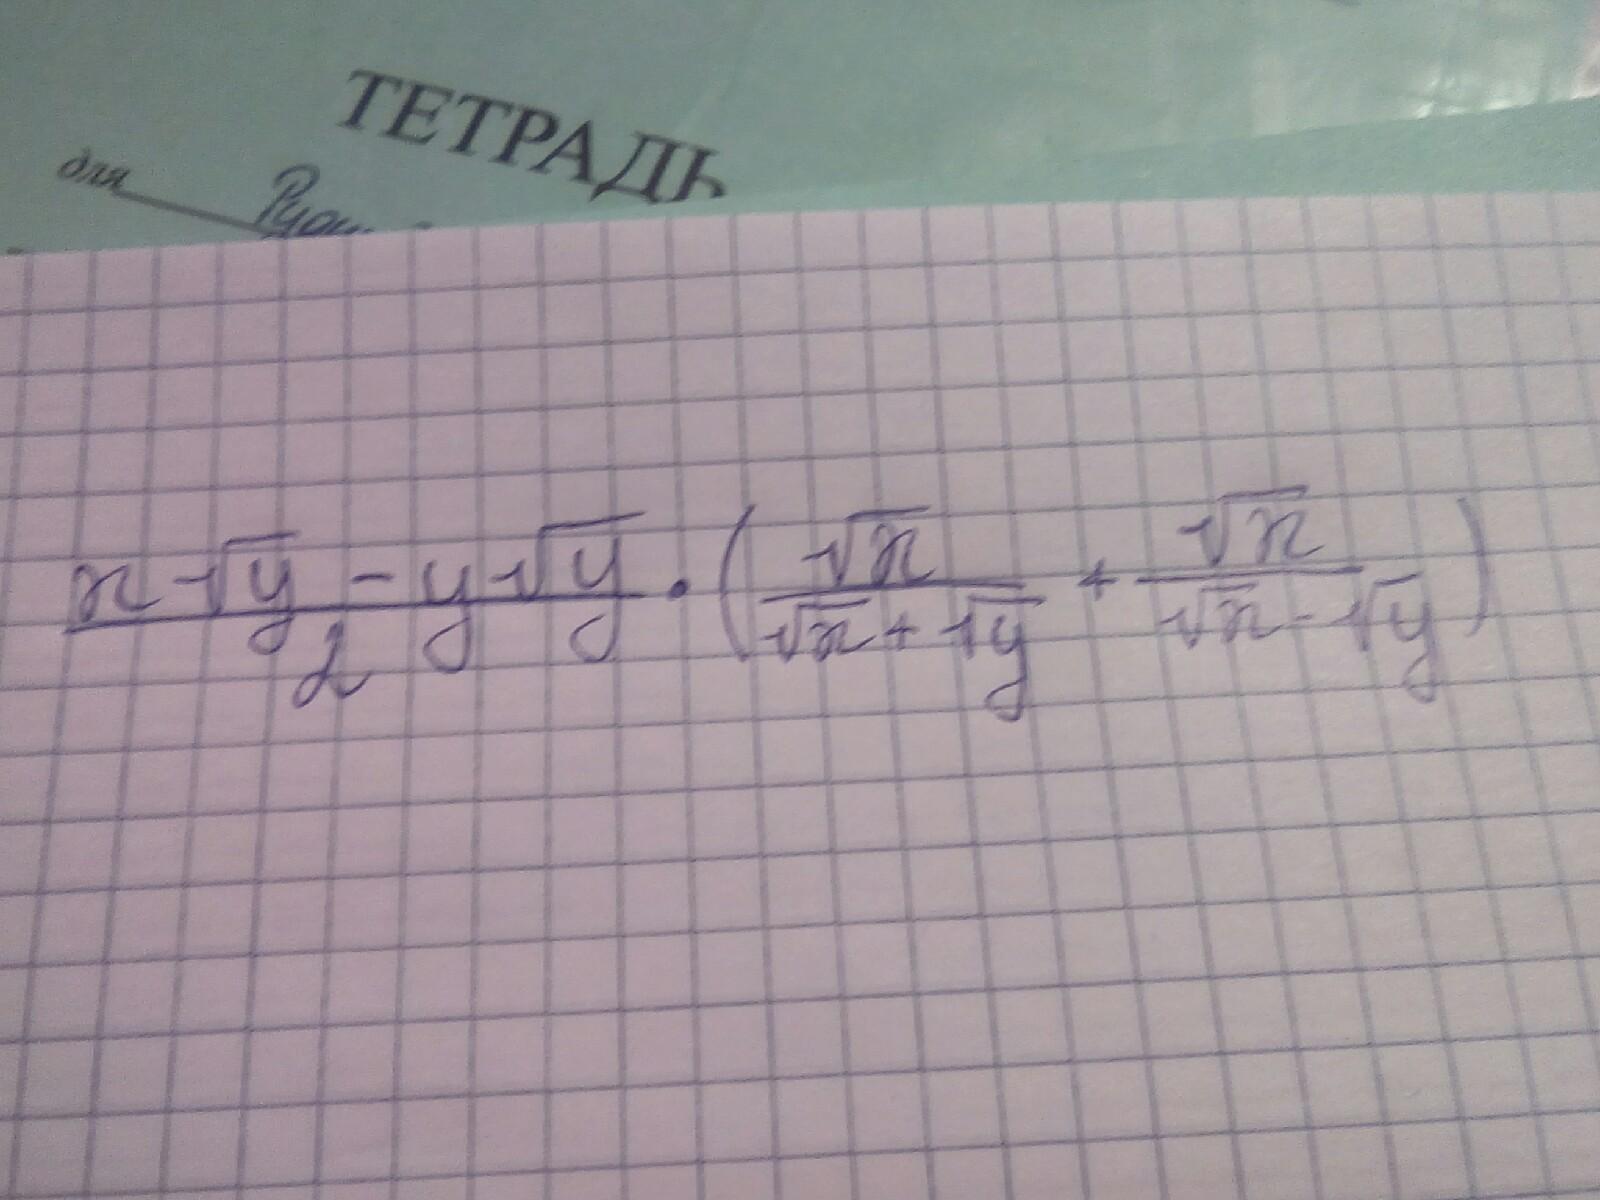 ТЕТРАДЬ
для
x√y - y√y / 2 · (√x / √x + √y + √x / √x - √y)